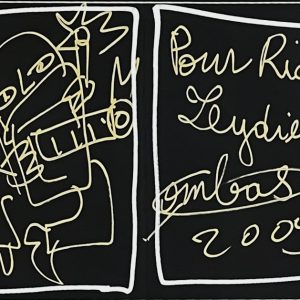 Pour Ric
Leydie
ombas
2009